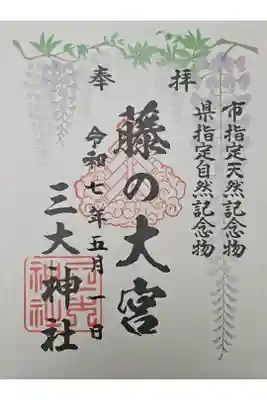 奉拝
市指定天然記念物
県指定自然記念物
藤の大宮
令和七年五月一日
三大神社